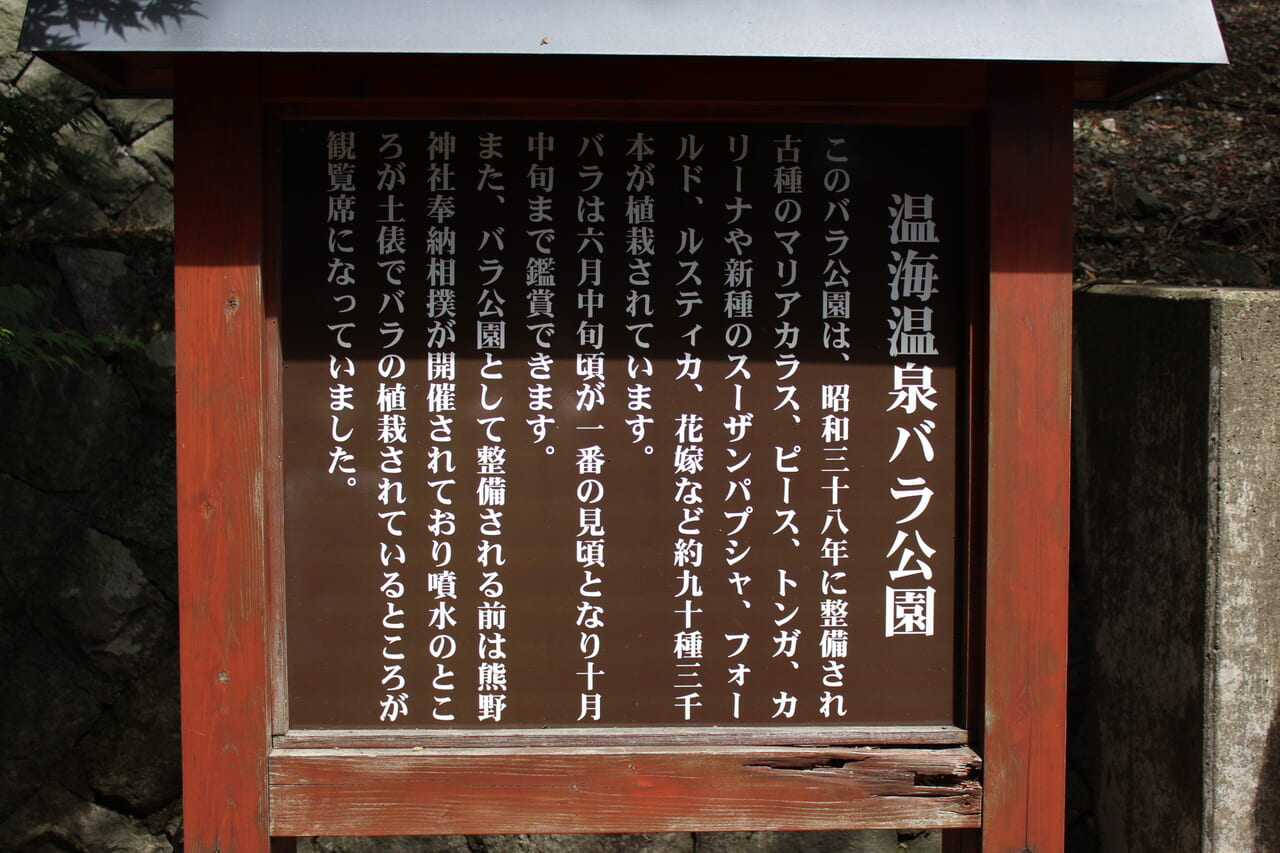 温海温泉バラ公園
このバラ公園は、昭和三十八年に整備され
古種のマリアカラス、ピース、トンガ、カ
リーナや新種のスーザンパプシャ、フォー
ルド、ルスティカ、花嫁など約九十種三千
本が植栽されています。
バラは六月中旬頃が一番の見頃となり十月
中旬まで鑑賞できます。
また、バラ公園として整備される前は熊野
神社奉納相撲が開催されており噴水のとこ
ろが土俵でバラの植栽されているところが
観覧席になっていました。